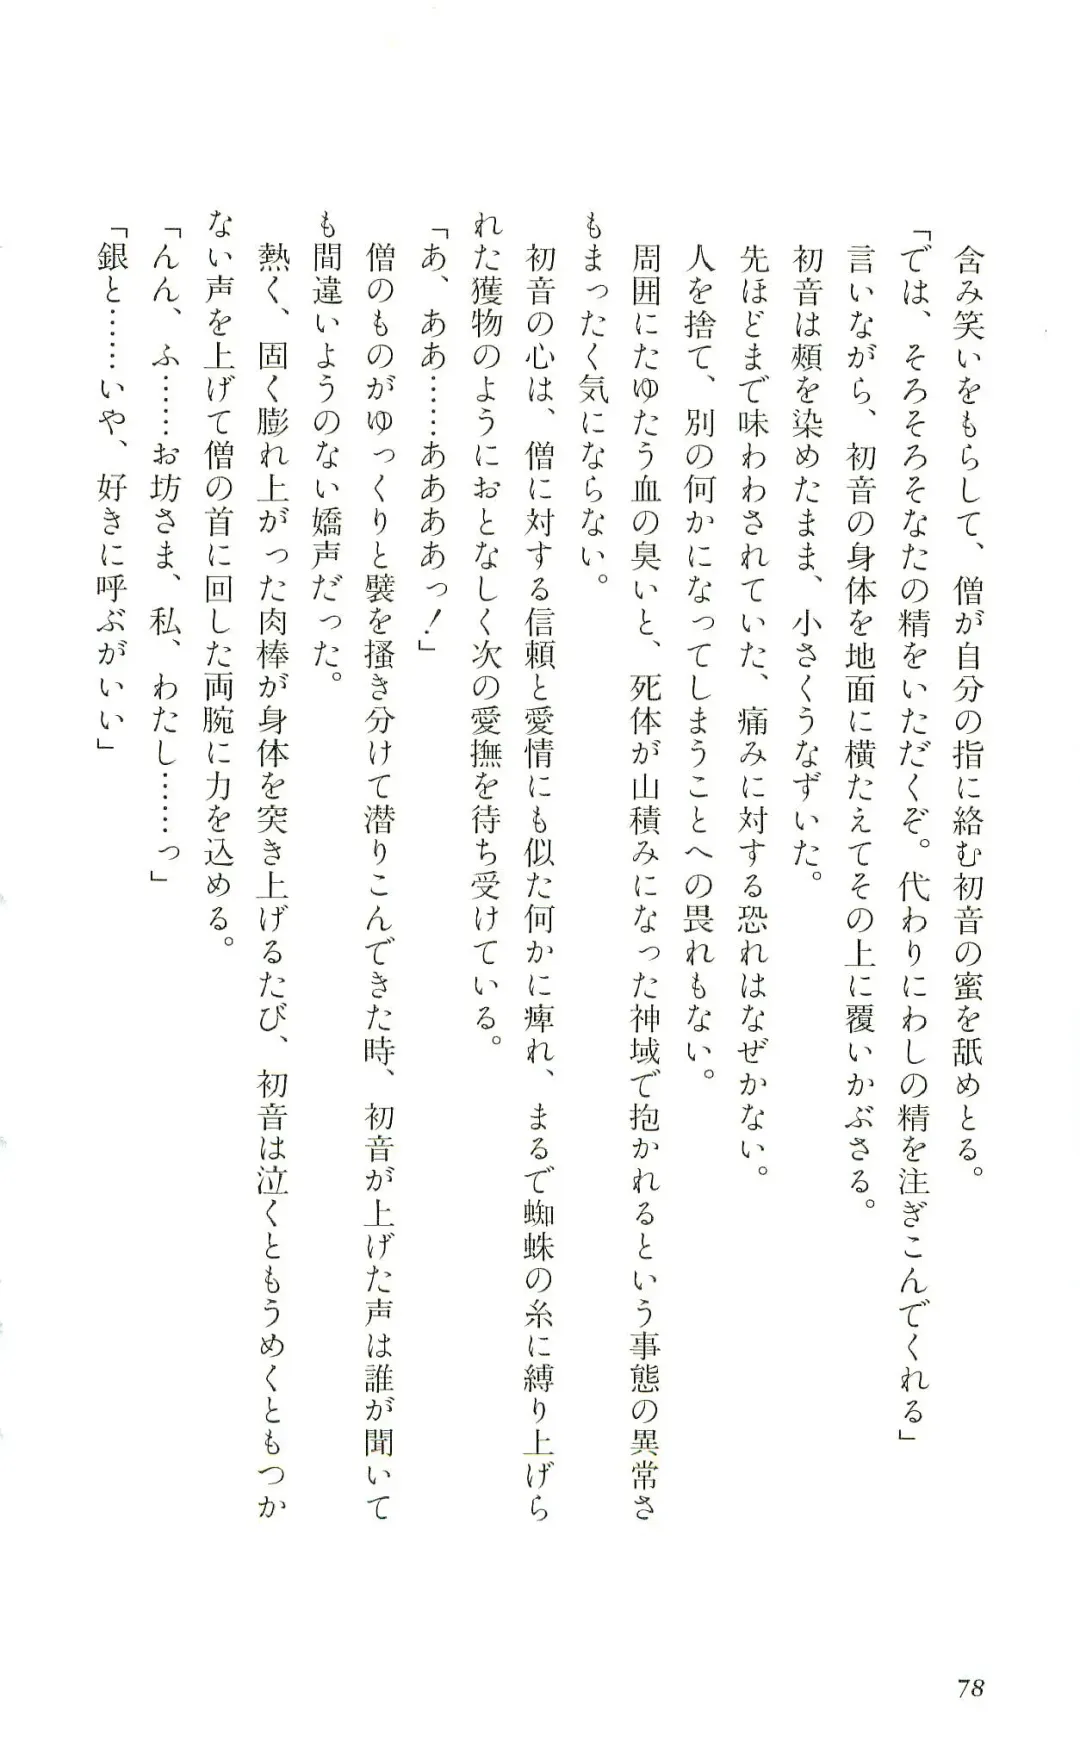 含み笑いをもらして、僧が自分の指に絡む初音の蜜を舐めとる。
「では、そろそろそなたの精をいただくぞ。代わりにわしの精を注ぎこんでくれる」
言いながら、初音の身体を地面に横たえてその上に覆いかぶさる。
初音は頬を染めたまま、小さくうなずいた。
先ほどまで味わわされていた、痛みに対する恐れはなぜかない。
人を捨て、別の何かになってしまうことへの畏れもない。
周囲にたゆたう血の臭いと、死体が山積みになった神域で抱かれるという事態の異常さ
もまったく気にならない。
初音の心は、僧に対する信頼と愛情にも似た何かに痺れ、まるで蜘蛛の糸に縛り上げら
れた獲物のようにおとなしく次の愛撫を待ち受けている。
「あ、ああ……ああああっ！」
僧のものがゆっくりと襞を掻き分けて潜りこんできた時、初音が上げた声は誰が聞いて
も間違いようのない嬌声だった。
熱く、固く膨れ上がった肉棒が身体を突き上げるたび、初音は泣くともうめくともつか
ない声を上げて僧の首に回した両腕に力を込める。
「んん、ふ……お坊さま、私、わたし……っ」
「銀と……いや、好きに呼ぶがいい」
78